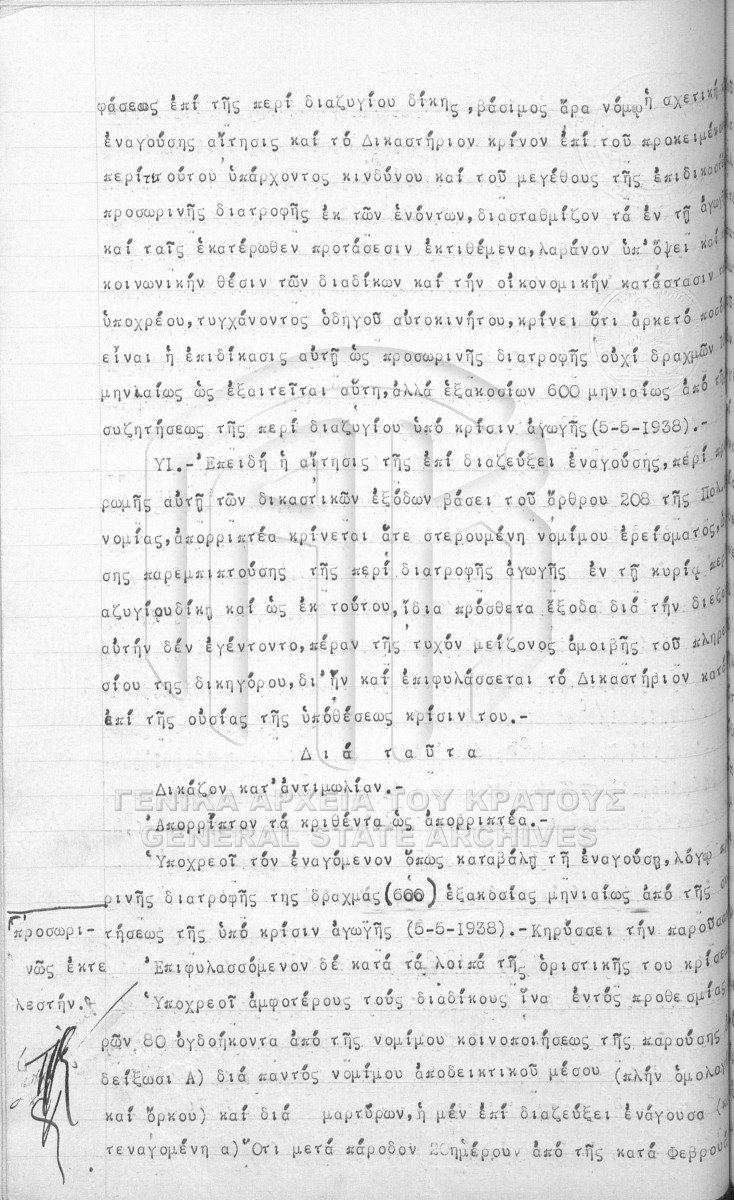 φάσεως ἐπί τῆς περί διαζυγίου δίκης ,βάσιμος ἄρα νόμῳ ἡ σχετική
ἐναγούσης αἴτησις καί τό Δικαστήριον κρίνον ἐπί τοῦ προκειμέν
περί τούτου ὑπάρχοντος κινδύνου καί τοῦ μεγέθους τῆς ἐπιδικασ
προσωρινῆς διατροφῆς ἐκ τῶν ἐνόντων,διασταθμίζον τά ἐν τῇ ἀγωγ
καί ταῖς ἑκατέρωθεν προτάσεσιν ἐκτιθέμενα,λαμβάνον ὑπ'ὄψει καί
κοινωνικήν θέσιν τῶν διαδίκων καί τήν οἰκονομικήν κατάστασιν
ὑποχρέου,τυγχάνοντος ὁδηγοῦ αὐτοκινήτου,κρίνει ὅτι ἀρκετό ποσό
εἶναι ἡ ἐπιδίκασις αὐτῇ ὡς προσωρινῆς διατροφῆς οὐχί δραχμῶν
μηνιαίως ὡς ἐξαιτεῖται αὕτη,ἀλλά ἑξακοσίων 600 μηνιαίως ἀπό τῆς
συζητήσεως τῆς περί διαζυγίου ὑπό κρίσιν ἀγωγῆς (5-5-1938).-
ΥΙ.-Ἐπειδή ἡ αἴτησις τῆς ἐπί διαζεύξει ἐναγούσης,περί
ρωμῆς αὐτῇ τῶν δικαστικῶν ἐξόδων βάσει τοῦ ἄρθρου 208 τῆς Πολ
νομίας,ἀπορριπτέα κρίνεται ἅτε στερουμένη νομίμου ἐρείσματος,
σης παρεμπιπτούσης τῆς περί διατροφῆς ἀγωγῆς ἐν τῇ κυρίᾳ περ
αζυγίου δίκῃ καί ὡς ἐκ τούτου,ἴδια πρόσθετα ἔξοδα διά τήν διεξα
αὐτήν δέν ἐγένοντο,πέραν τῆς τυχόν μείζονος ἀμοιβῆς τοῦ πληρε
σίου της δικηγόρου,δι'ἥν καί ἐπιφυλάσσεται τό Δικαστήριον κατά
ἐπί τῆς οὐσίας τῆς ὑποθέσεως κρίσιν του.-
Διά ταῦτα
Δικάζον κατ'ἀντιμωλίαν.-
Ἀπορρῖπτον τά κριθέντα ὡς ἀπορριπτέα.-
ΓΕΝΙΚΑ ΑΡΧΕΙΑ ΤΟΥ ΚΡΑΤΟΥΣ
GENERAL STATE ARCHIVES
Ὑποχρεοῖ τόν ἐναγόμενον ὅπως καταβάλῃ τῇ ἐναγούσῃ,λόγῳ
ρινῆς διατροφῆς της δραχμάς (600) ἑξακοσίας μηνιαίως ἀπό τῆς
τήσεως τῆς ὑπό κρίσιν ἀγωγῆς (5-5-1938).-Κηρύσσει τήν παροῦσα
προσωρι-
νῶς ἐκτε
λεστήν.
Ἐπιφυλασσόμενον δέ κατά τά λοιπά τῆς ὁριστικῆς του κρίσε
Ὑποχρεοῖ ἀμφοτέρους τούς διαδίκους ἵνα ἐντός προθεσμίας
ρῶν 80 ὀγδοήκοντα ἀπό τῆς νομίμου κοινοποιήσεως τῆς παρούσης
δείξωσι Α) διά παντός νομίμου ἀποδεικτικοῦ μέσου (πλήν ὁμολογ
καί ὅρκου) καί διά μαρτύρων,ἡ μέν ἐπί διαζεύξει ἐνάγουσα
τεναγομένη α)Ὅτι μετά πάροδον 20ημέρου ἀπό τῆς κατά Φεβρουά